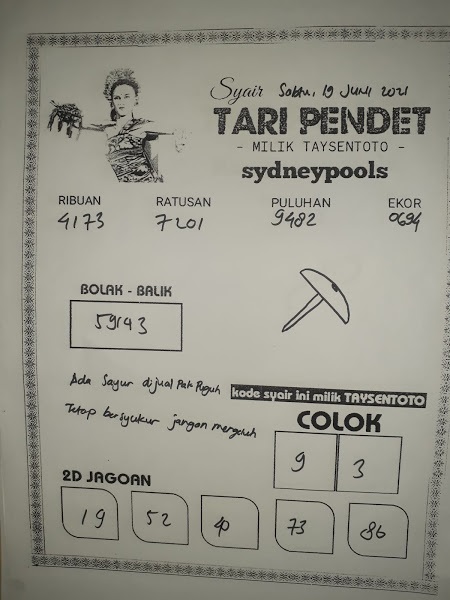 Syair Sabtu, 19 Juni 2021
TARI PENDET
- MILIK TAYSENTOTO -
sydneypools
RIBUAN RATUSAN PULUHAN EKOR
4173 7201 9482 0694
BOLAK - BALIK
59143
Ada Sayur dijual Pak Puguh
kode syair ini milik TAYSENTOTO
Tetap bersyukur jangan mengeluh
COLOK
9 3
2D JAGOAN
19 52 40 73 86